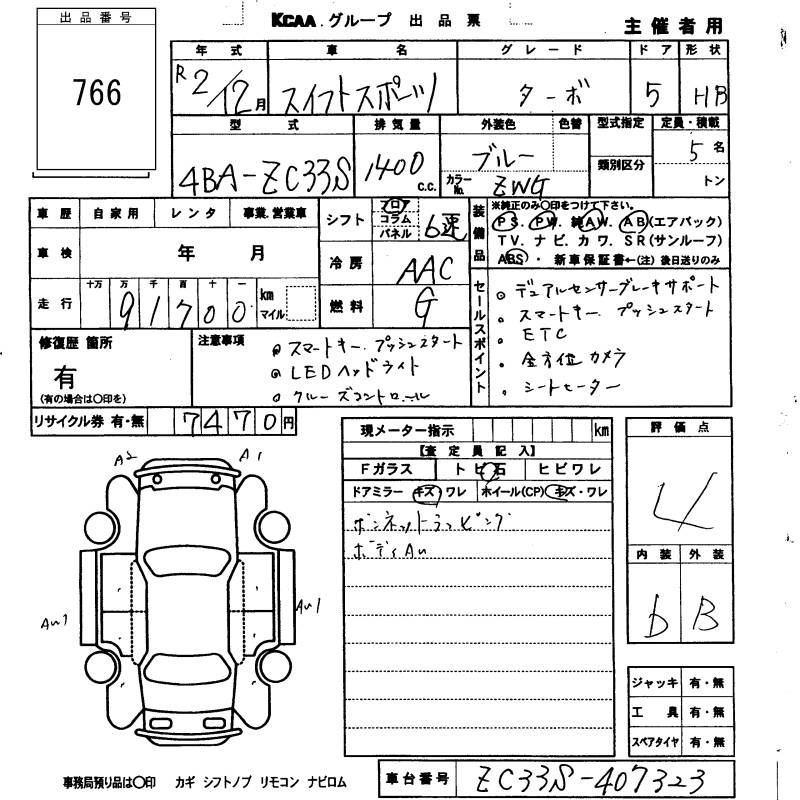 出品番号
766
KCAA.グループ 出品票
主催者用
年式 車名 グレード ドア 形状
R2/12月 スイフトスポーツ ターボ 5 HB
型式 排気量 外装色 色替 型式指定 定員・積載
4BA-ZC33S 1400 c.c. ブルー 5名
カラーNo. ZWG 類別区分 トン
車歴 自家用 レンタ 事業.営業車
車検 年 月
走行 十万 万 千 百 十 一
91700 km マイル
シフト フロア コラム パネル 6速
冷房 AAC
燃料 G
装備品
※純正のみ○印をつけて下さい。
PS. PW. 純AW. AB(エアバック)
TV. ナビ. カワ. SR(サンルーフ)
ABS・ 新車保証書←(注) 後日送りのみ
セールスポイント
。デュアルセンサーブレーキサポート
。スマートキー. プッシュスタート
。ETC
。全方位カメラ
。シートヒーター
修復歴 箇所
有
(有の場合は○印を)
注意事項
。スマートキー.プッシュスタート
。LEDヘッドライト
。クルーズコントロール
リサイクル券 有・無 7470円
現メーター指示 km
【査定員記入】
Fガラス トビ石 ヒビワレ
ドアミラー キズ・ワレ ホイール(CP) キズ・ワレ
ボンネットラッピング
ボディAu
評価点
4
内装 外装
b B
A2 A1
Au1 Au1
ジャッキ 有・無
工具 有・無
スペアタイヤ 有・無
事務局預り品は○印 カギ シフトノブ リモコン ナビロム
車台番号 ZC33S-407323